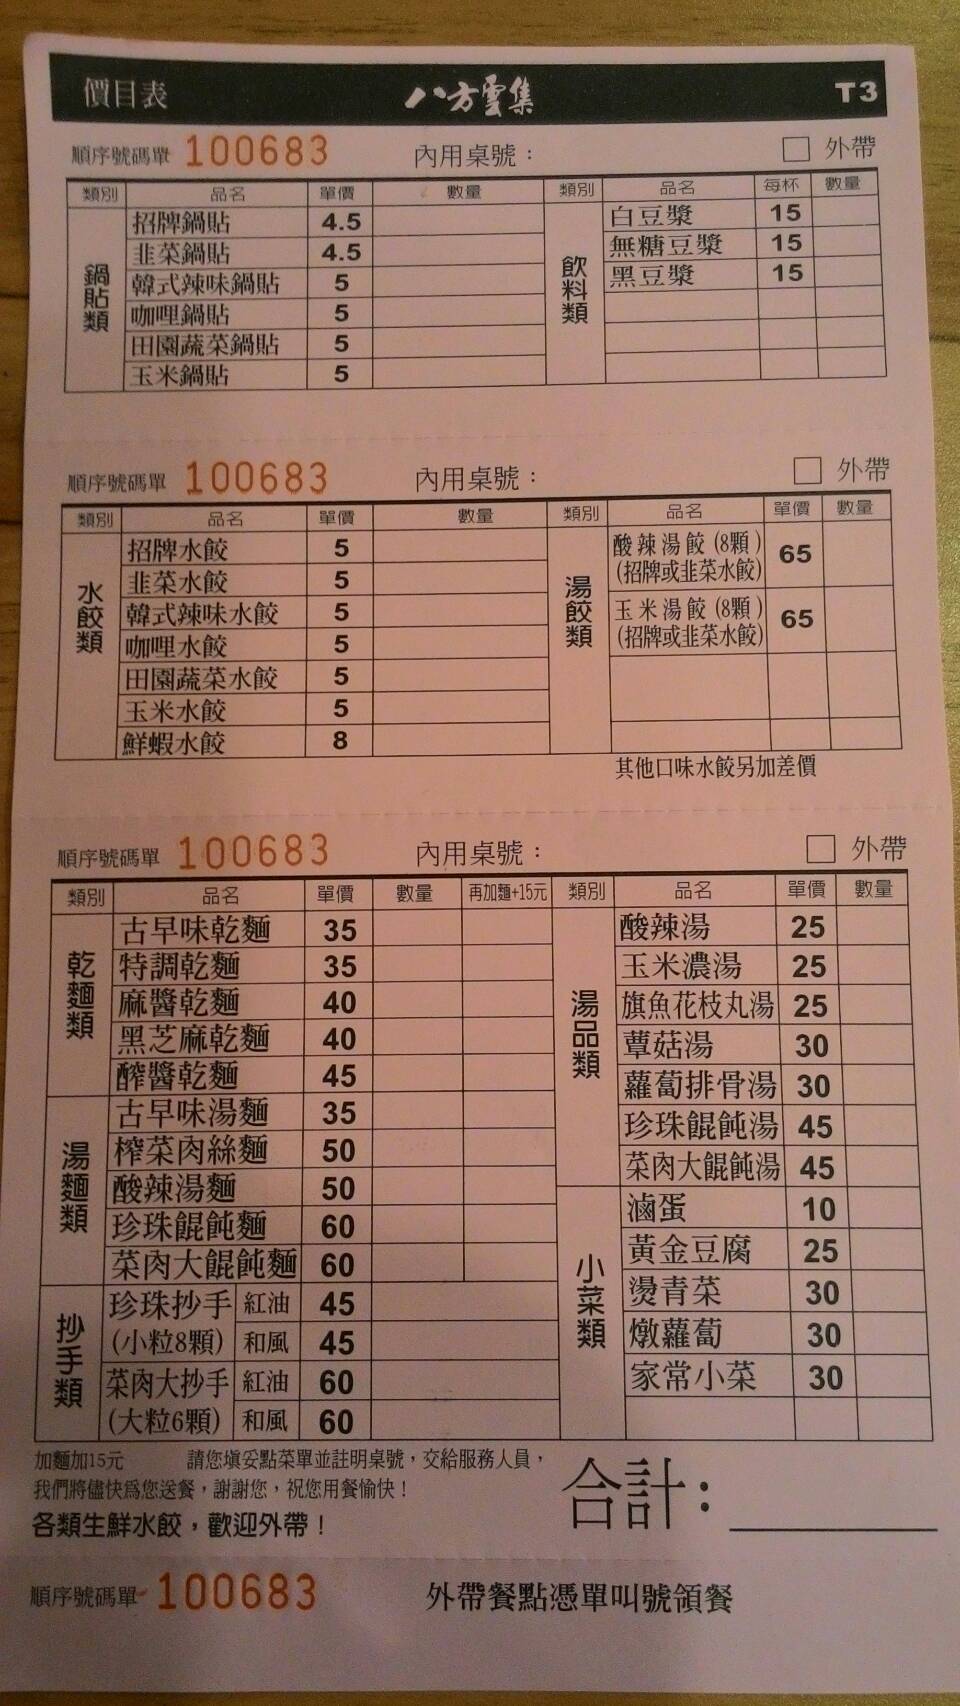 價目表 八方雲集 T3
順序號碼單 100683 內用桌號： 外帶
類別 品名 單價 數量 類別 品名 每杯 數量
鍋貼類
招牌鍋貼 4.5
韭菜鍋貼 4.5
韓式辣味鍋貼 5
咖哩鍋貼 5
田園蔬菜鍋貼 5
玉米鍋貼 5
飲料類
白豆漿 15
無糖豆漿 15
黑豆漿 15
順序號碼單 100683 內用桌號： 外帶
類別 品名 單價 數量 類別 品名 單價 數量
水餃類
招牌水餃 5
韭菜水餃 5
韓式辣味水餃 5
咖哩水餃 5
田園蔬菜水餃 5
玉米水餃 5
鮮蝦水餃 8
湯餃類
酸辣湯餃 (8顆) 65
(招牌或韭菜水餃)
玉米湯餃 (8顆) 65
(招牌或韭菜水餃)
其他口味水餃另加差價
順序號碼單 100683 內用桌號： 外帶
類別 品名 單價 數量 再加麵+15元 類別 品名 單價 數量
乾麵類
古早味乾麵 35
特調乾麵 35
麻醬乾麵 40
黑芝麻乾麵 40
醡醬乾麵 45
湯麵類
古早味湯麵 35
榨菜肉絲麵 50
酸辣湯麵 50
珍珠餛飩麵 60
菜肉大餛飩麵 60
抄手類
珍珠抄手 紅油 45
(小粒8顆) 和風 45
菜肉大抄手 紅油 60
(大粒6顆) 和風 60
湯品類
酸辣湯 25
玉米濃湯 25
旗魚花枝丸湯 25
蕈菇湯 30
蘿蔔排骨湯 30
珍珠餛飩湯 45
菜肉大餛飩湯 45
小菜類
滷蛋 10
黃金豆腐 25
燙青菜 30
燉蘿蔔 30
家常小菜 30
加麵加15元 請您填妥點菜單並註明桌號，交給服務人員，
我們將儘快為您送餐，謝謝您，祝您用餐愉快！
各類生鮮水餃，歡迎外帶！
合計：
順序號碼單 100683 外帶餐點憑單叫號領餐